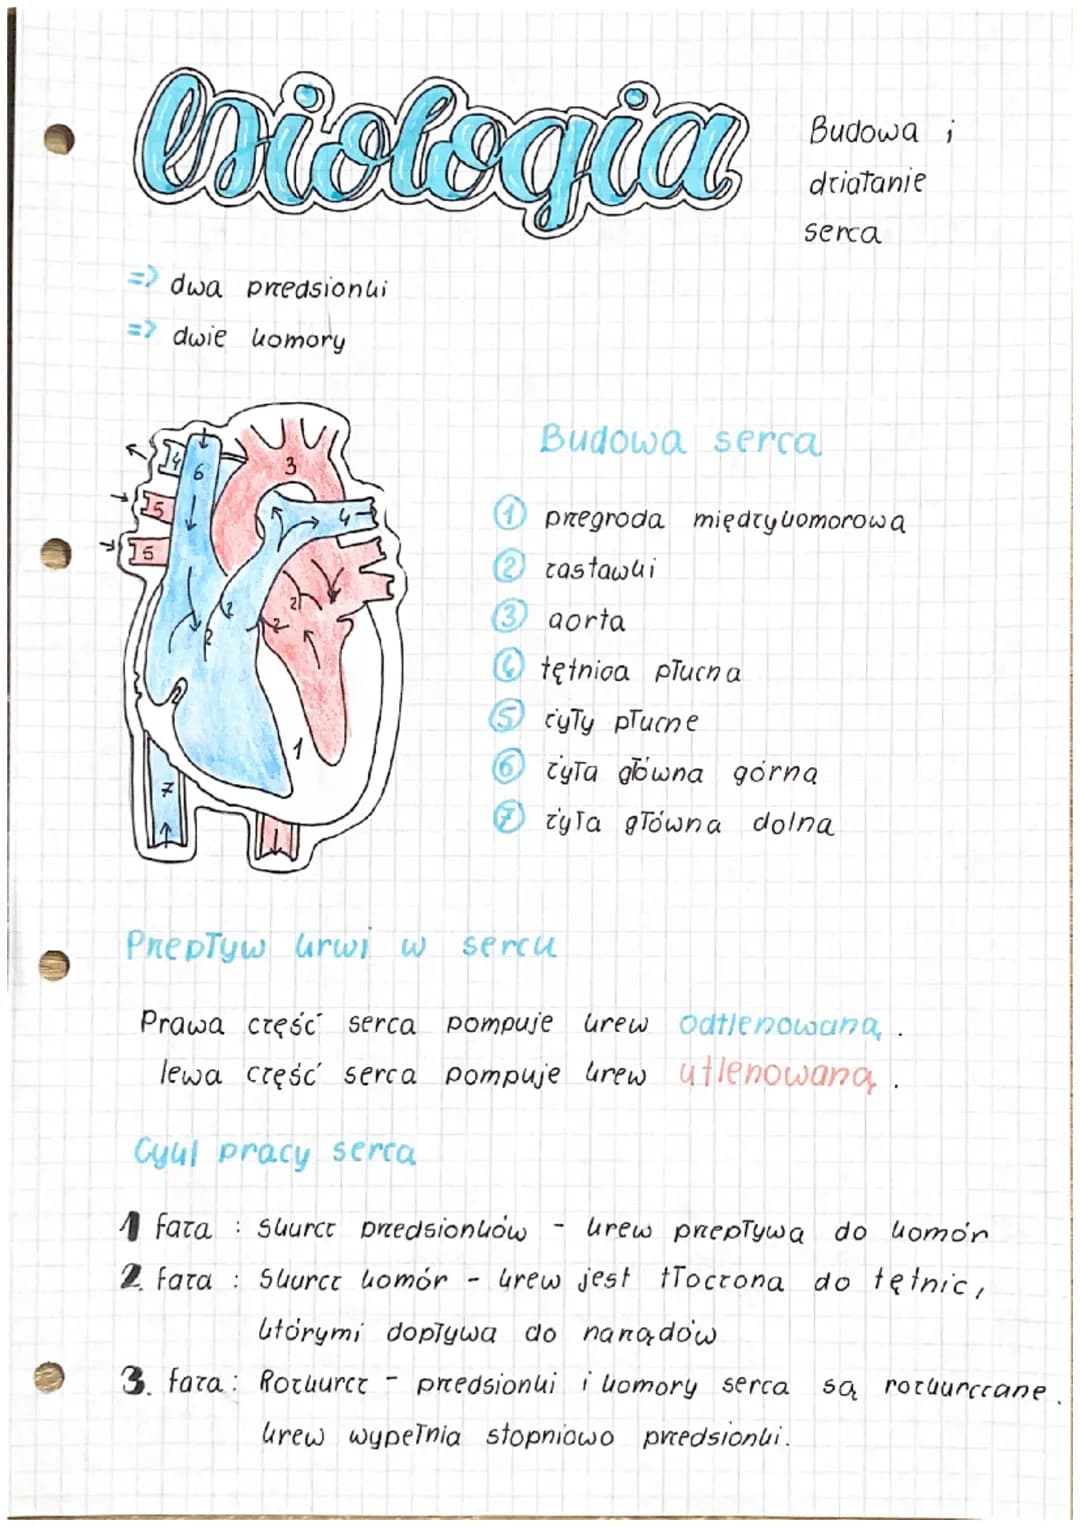 biologia
Budowa i
działanie
serca
=> dwa przedsionki
=> dwie komory
4
6
3
5
4
5
2
2
2
2
1
7
Budowa serca
1 przegroda międzykomorowa
2 zastawki
3 aorta
4 tętnica płucna
5 żyły płucne
6 żyła główna górna
7 żyła główna dolna
Przepływ krwi w sercu
Prawa część serca pompuje krew odtlenowaną.
lewa część serca pompuje krew utlenowaną.
Cykl pracy serca
1 faza : Skurcz przedsionków - krew przepływa do komór
2. faza : Skurcz komór - krew jest tłoczona do tętnic,
którymi dopływa do narządów
3. faza: Rozkurcz - przedsionki i komory serca są rozkurczane.
krew wypełnia stopniowo przedsionki.